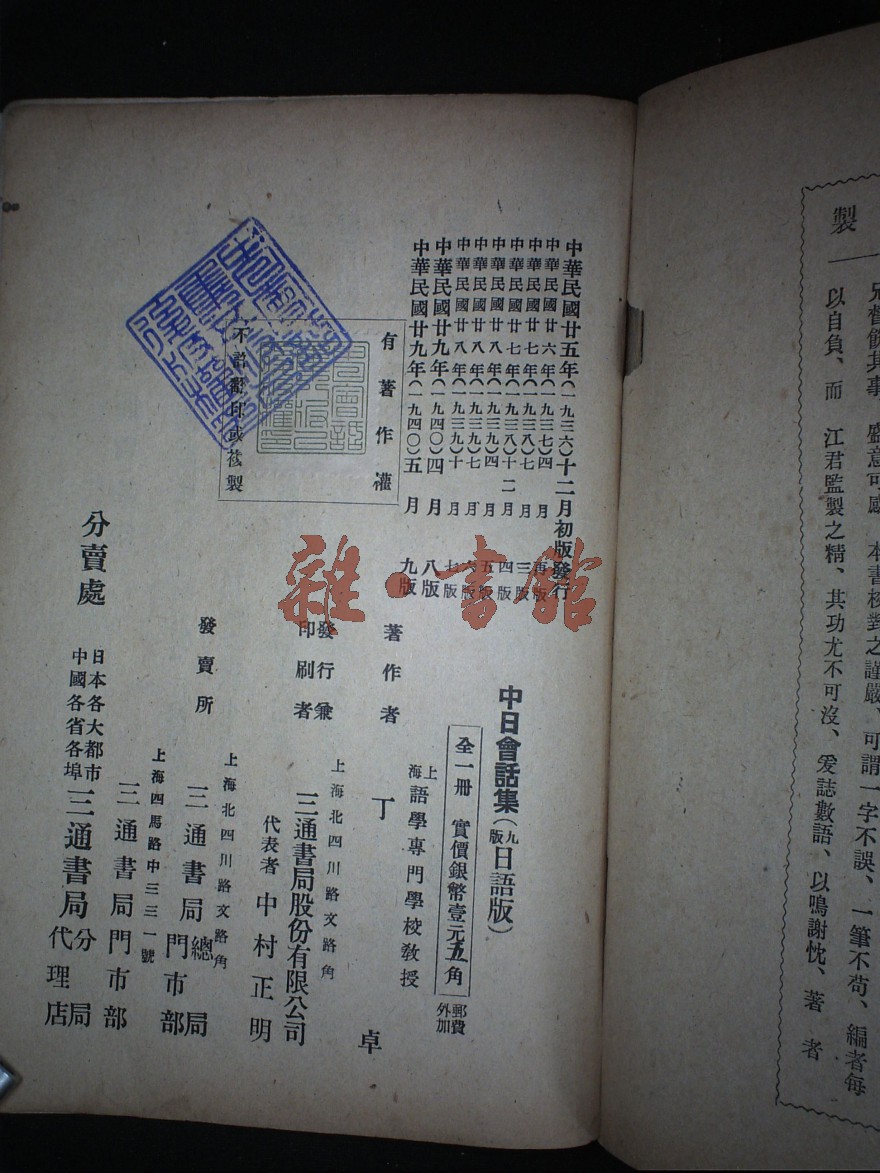 製
兄督飭其事、盛意可感、本書校對之謹嚴、可謂一字不誤、一筆不苟、編者每
以自負、而 江君監製之精、其功尤不可沒、爰誌數語、以鳴謝忱、著者
中華民國廿五年(一九三六)十二月初版發行
中華民國廿六年(一九三七)四月再版
中華民國廿七年(一九三八)七月三版
中華民國廿七年(一九三八)十二月四版
中華民國廿八年(一九三九)四月五版
中華民國廿八年(一九三九)七月六版
中華民國廿八年(一九三九)十月七版
中華民國廿九年(一九四〇)四月八版
中華民國廿九年(一九四〇)五月九版
有著作權
不許翻印或複製
中日會話集(九版日語版)
全一冊 實價銀幣壹元五角
郵費外加
著作者
上海語學專門學校教授
丁卓
發行兼印刷者
上海北四川路文路角
三通書局股份有限公司
代表者 中村正明
發賣所
上海北四川路文路角
三通書局總局門市部
上海四馬路中三三一號
三通書局門市部
分賣處
日本各大都市
中國各省各埠
三通書局分局代理店
雜·書館